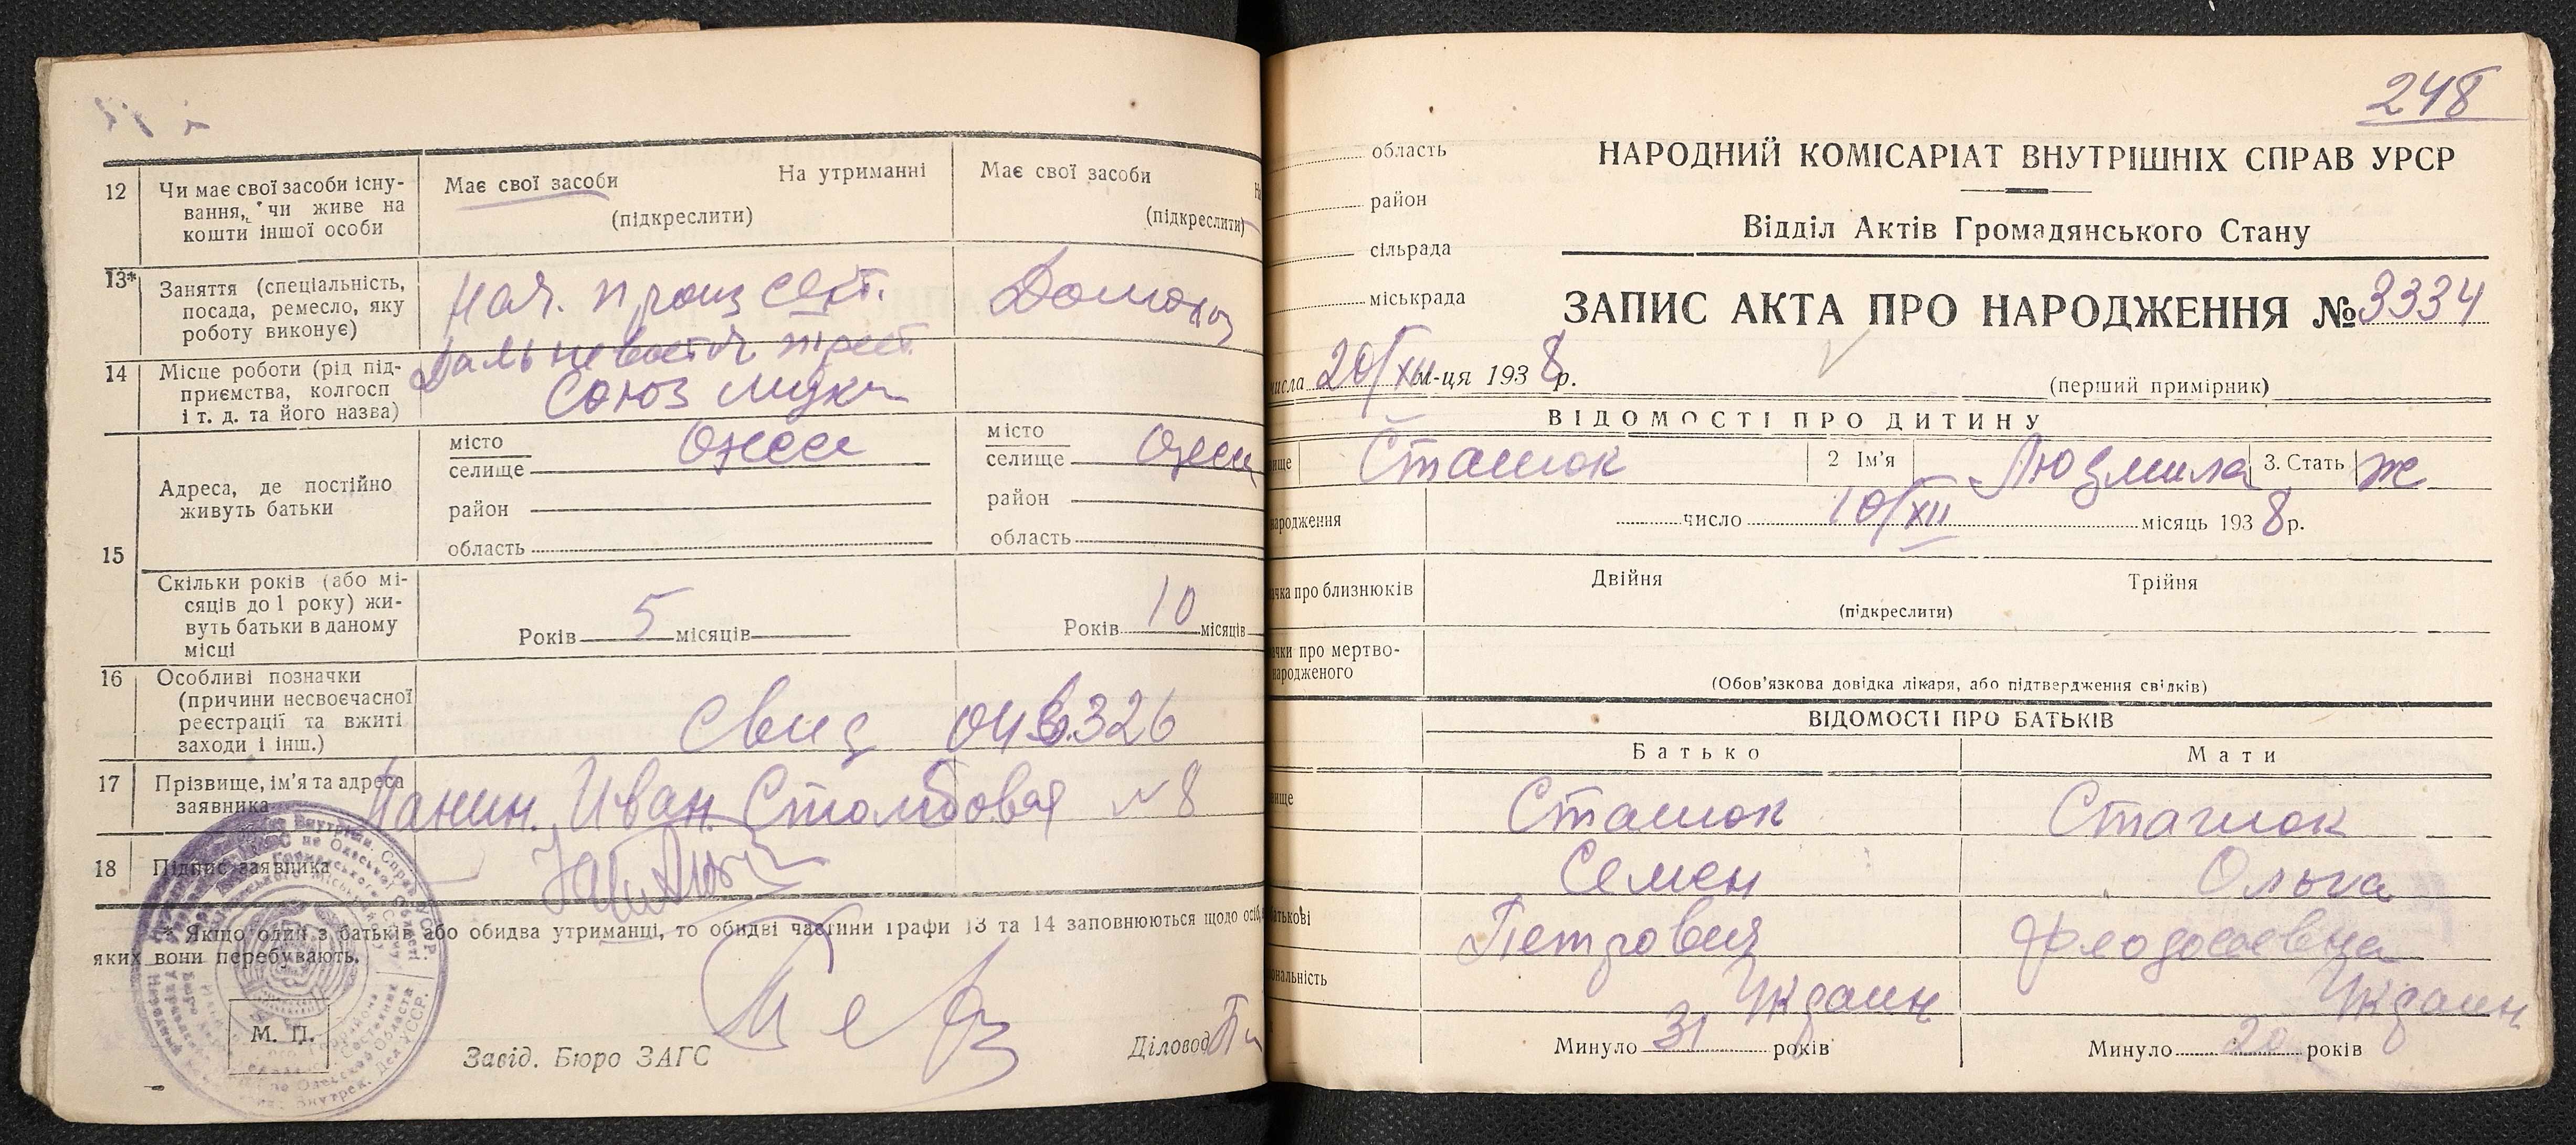 12 Чи має свої засоби існу-
вання, чи живе на
кошти іншої особи
Має свої засоби На утриманні
(підкреслити)
Має свої засоби
(підкреслити)
13* Заняття (спеціальність,
посада, ремесло, яку
роботу виконує)
Нач.
Домохоз
14 Місце роботи (рід під-
приємства, колгосп
і т. д. та його назва)
Дальневосточ трест
Союз
15 Адреса, де постійно
живуть батьки
місто
селище
район
область
місто
селище
район
область
Скільки років (або мі-
сяців до 1 року) жи-
вуть батьки в даному
місці
Років 5 місяців
Років 10 місяців
16 Особливі позначки
(причини несвоєчасної
реєстрації та вжиті
заходи і інш.)
Свид 326
17 Прізвище, ім'я та адреса
заявника
Панин. Иван. Столбовая №8
18 Підпис заявника
* Якщо один з батьків або обидва утриманці, то обидві частини графи 13 та 14 заповнюються щодо осіб,
яких вони перебувають.
М. П.
Завід. Бюро ЗАГС
Діловод
248
область
район
сільрада
міськрада
НАРОДНИЙ КОМІСАРІАТ ВНУТРІШНІХ СПРАВ УРСР
Відділ Актів Громадянського Стану
ЗАПИС АКТА ПРО НАРОДЖЕННЯ № 3334
числа 20/XII м-ця 1938 р.
(перший примірник)
ВІДОМОСТІ ПРО ДИТИНУ
Сташок 2 Ім'я Людмила 3. Стать ж
число 10/XII місяць 1938 р.
про близнюків
Двійня Трійня
(підкреслити)
про мертво-
народженого
(Обов'язкова довідка лікаря, або підтвердження свідків)
ВІДОМОСТІ ПРО БАТЬКІВ
Батько Мати
Сташок Сташок
Семен Ольга
Петрович Феодосеевна
Украин Украин
Минуло 31 років Минуло 20 років